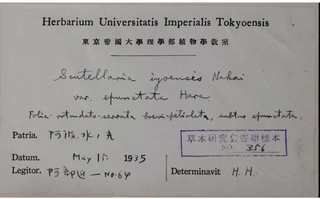 Herbarium Universitatis Imperialis Tokyoensis
東京帝國大學理學部植物學教室
Scutellaria iyoensis Nakai
var. epunctata Hara
Folia rotundato-serrata brevi-petiolata, subtus epunctata.
Patria. 阿波, 水ノ丸
草木研究會寄贈標本
NO. 356
Datum. May 15. 1935
Legitor. 阿部近一 — No. 64
Determinavit H. H.